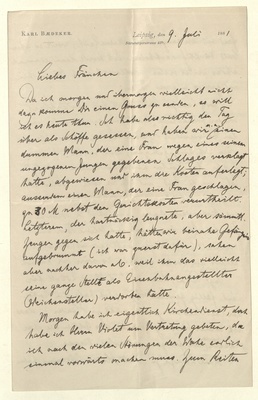 KARL BAEDEKER.
Leipzig, den 9. Juli 1
Liebes Frauchen
Da ich morgen und übermorgen vielleicht nicht
dazu komme Dir einen Gruss zu senden, so will
ich es heute thun. Ich habe also richtig den Tag
über als Schöffe gesessen, und haben wir einen
dummen Mann, der eine Frau wegen eines seinem
ungezogenen Jungen gegebenen Schlages verklagt
hatte, abgewiesen und ihm die Kosten auferlegt;
ausserdem einen Mann, der eine Frau geschlagen,
zu 30 M nebst den Gerichtskosten verurtheilt.
Letzterem, der hartnäckig leugnete, aber
Zeugen gegen sich hatte, hätten wir beinahe Gefängniss
aufgebrummt (ich war zuerst dafür), sahen
aber nachher davon ab, weil ihm das vielleicht
seine ganze Stelle als Eisenbahnangestellter
(Weichensteller) verdorben hätte.
Morgen habe ich eigentlich Kirchendienst, doch
habe ich Herrn Violet um Vertretung gebeten, da
ich nach den vielen Störungen der Woche endlich
einmal vorwärts machen muss. Zum Reiten